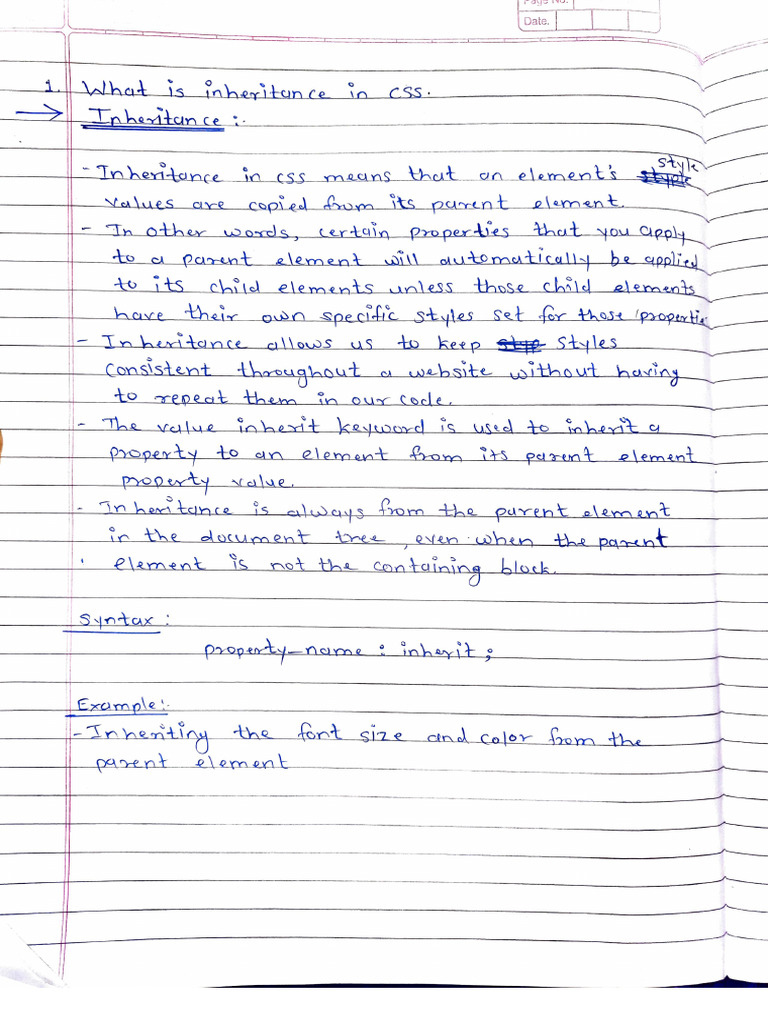 Page No.
Date.
1. What is inheritance in css.
→ Inheritance :-
style
- Inheritance in css means that an element's
values are copied from its parent element.
- In other words, certain properties that you apply
to a parent element will automatically be applied
to its child elements unless those child elements
have their own specific styles set for those propertie
- Inheritance allows us to keep styles
consistent throughout a website without having
to repeat them in our code.
- The value inherit keyword is used to inherit a
property to an element from its parent element
property value.
- Inheritance is always from the parent element
in the document tree, even when the parent
element is not the containing block.
Syntax :
property-name : inherit ;
Example :-
- Inheriting the font size and color from the
parent element